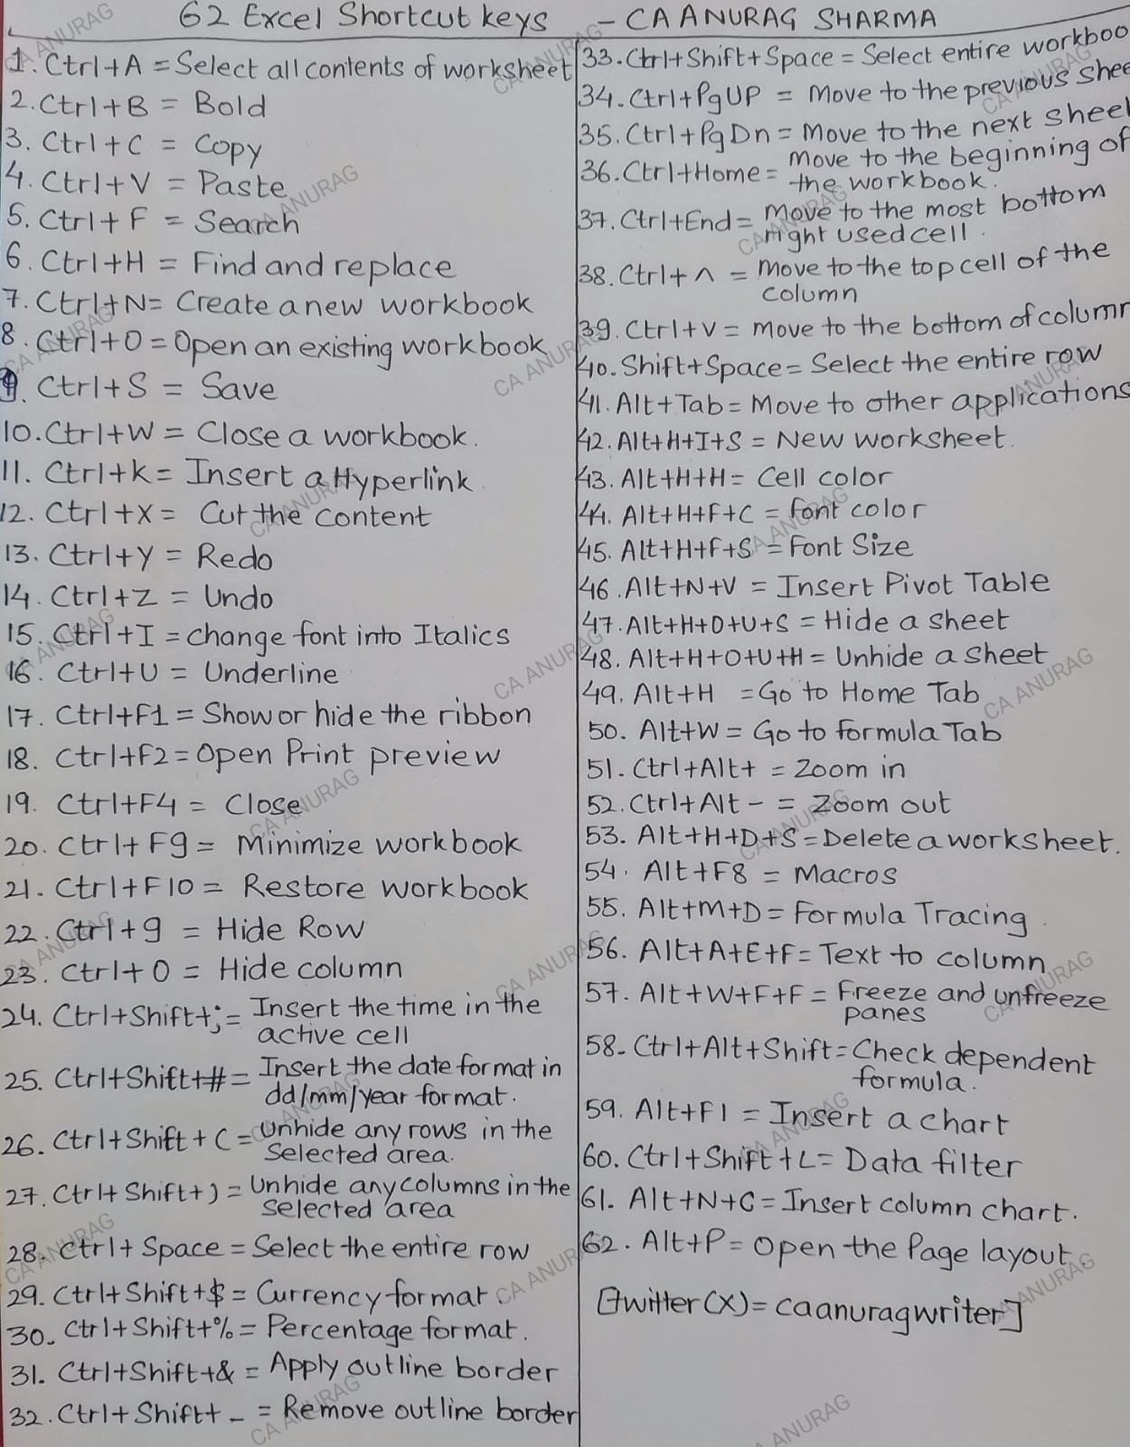 62 Excel Shortcut keys - CA ANURAG SHARMA
1. Ctrl+A = Select all contents of worksheet
2. Ctrl+B = Bold
3. Ctrl+C = Copy
4. Ctrl+V = Paste
5. Ctrl+F = Search
6. Ctrl+H = Find and replace
7. Ctrl+N= Create a new workbook
8. Ctrl+O = Open an existing workbook
9. Ctrl+S = Save
10. Ctrl+W = Close a workbook.
11. Ctrl+k = Insert a Hyperlink
12. Ctrl+x = Cut the content
13. Ctrl+y = Redo
14. Ctrl+z = Undo
15. Ctrl+I = change font into Italics
16. Ctrl+U = Underline
17. Ctrl+F1 = Show or hide the ribbon
18. Ctrl+F2 = Open Print preview
19. Ctrl+F4 = Close
20. Ctrl+F9 = Minimize workbook
21. Ctrl+F10 = Restore workbook
22. Ctrl+9 = Hide Row
23. Ctrl+0 = Hide column
24. Ctrl+Shift+; = Insert the time in the
active cell
25. Ctrl+Shift+# = Insert the date format in
dd/mm/year format.
26. Ctrl+Shift+C = Unhide any rows in the
Selected area.
27. Ctrl+Shift+) = Unhide any columns in the
selected area
28. Ctrl+Space = Select the entire row
29. Ctrl+Shift+$ = Currency format.
30. Ctrl+Shift+% = Percentage format.
31. Ctrl+Shift+& = Apply outline border
32. Ctrl+Shift+- = Remove outline border
33. Ctrl+Shift+Space = Select entire workboo
34. Ctrl+PgUP = Move to the previous shee
35. Ctrl+PgDn = Move to the next sheet
36. Ctrl+Home = Move to the beginning of
the workbook.
37. Ctrl+End = Move to the most bottom
right used cell.
38. Ctrl+^ = Move to the top cell of the
column
39. Ctrl+v = Move to the bottom of column
40. Shift+Space= Select the entire row
41. Alt+Tab= Move to other applications
42. Alt+H+I+S = New worksheet.
43. Alt+H+H = Cell color
44. Alt+H+F+C = font color
45. Alt+H+F+S = Font Size
46. Alt+N+V = Insert Pivot Table
47. Alt+H+O+U+S = Hide a sheet
48. Alt+H+O+U+H = Unhide a sheet
49. Alt+H = Go to Home Tab
50. Alt+W = Go to formula Tab
51. Ctrl+Alt+ = Zoom in
52. Ctrl+Alt - = Zoom out
53. Alt+H+D+S = Delete a worksheet.
54. Alt+F8 = Macros
55. Alt+M+D = Formula Tracing
56. Alt+A+E+F= Text to column
57. Alt+W+F+F = Freeze and unfreeze
panes
58- Ctrl+Alt+Shift = Check dependent
formula.
59. Alt+F1 = Insert a chart
60. Ctrl+Shift+L = Data filter
61. Alt+N+C = Insert column chart.
62. Alt+P = Open the Page layout.
[Twitter(X)= caanuragwriter]